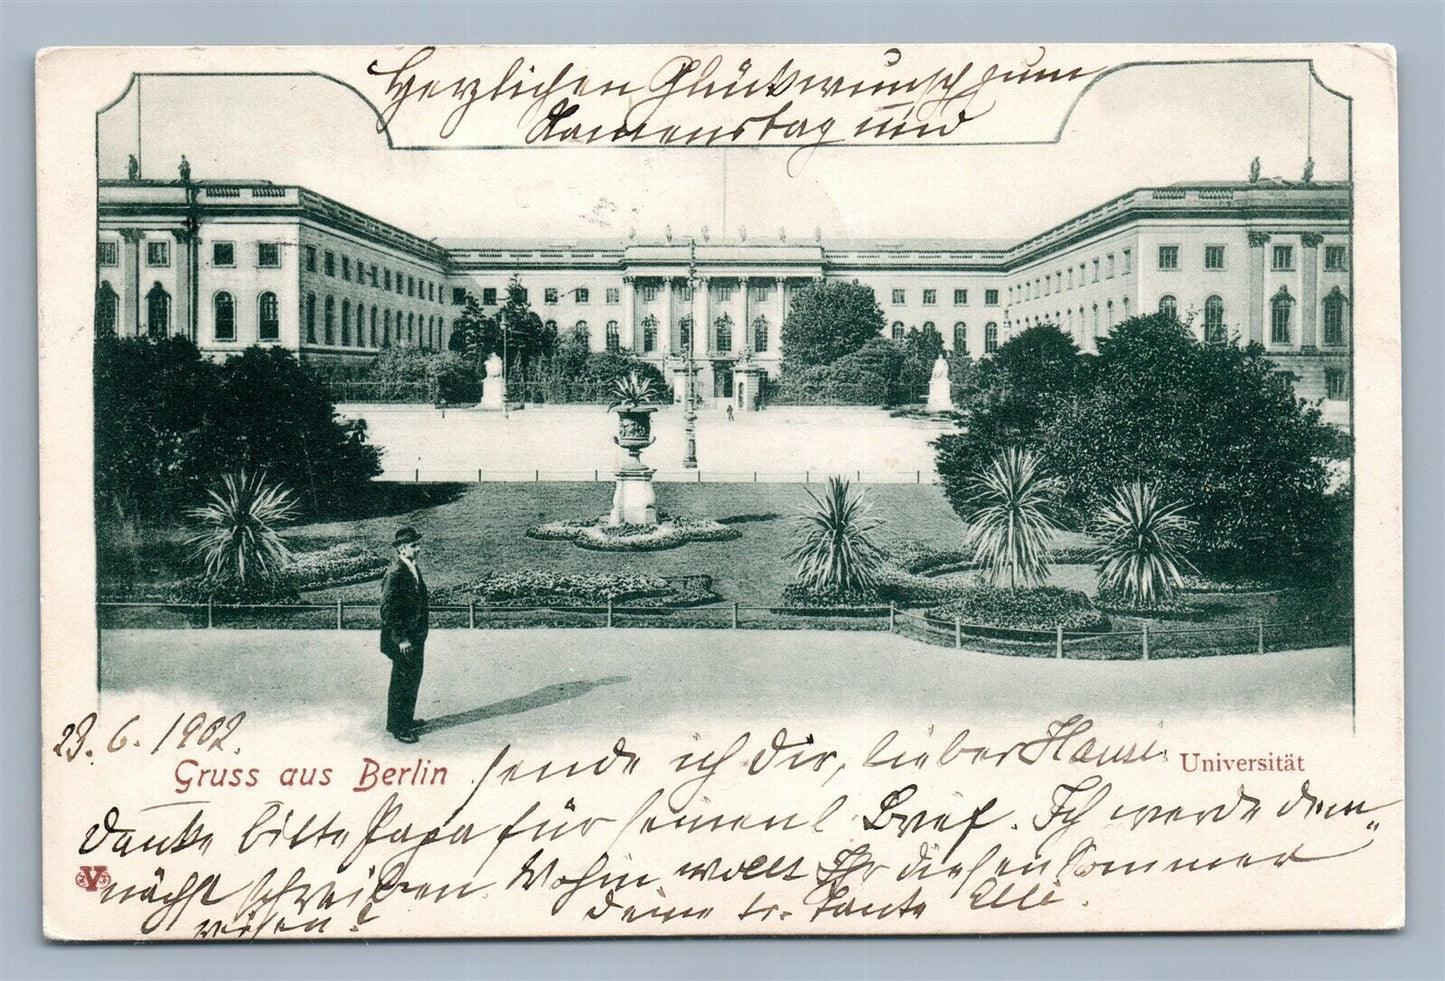 Herzlichen Glückwunsch zum
Namenstag und
23. 6. 1902.
sende ich Dir, lieber Hansi.
Gruss aus Berlin
Universität
Danke bitte Papa für seinen l. Brief. Ich werde dem-
nächst schreiben. Wohin wollt Ihr diesen Sommer
reisen?
Deine tr. Tante Elli.
V